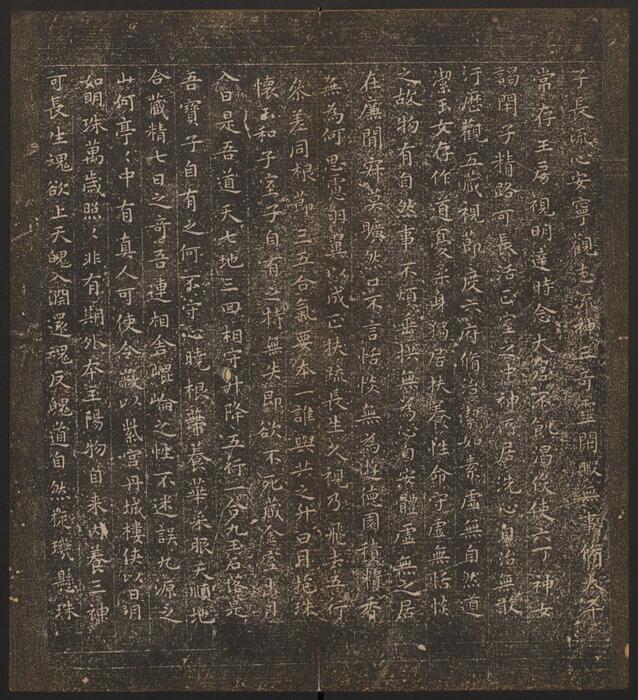 子長流心安寧觀志流神三奇靈閒暇無事脩太平
常存玉房視明達時念大倉不飢渴役使六丁神女
謁閉子精路可長活正室之中神所居洗心自治無敢
汙歷觀五藏視節度六府脩治潔如素虛無自然道
之故物有自然事不煩垂拱無為心自安體虛無之居
在廉閒寂莫曠然口不言恬惔無為遊德園積精香
潔玉女存作道憂柔身獨居扶養性命守虛無恬惔
無為何思慮羽翼以成正扶疏長生久視乃飛去五行
參差同根節三五合氣要本一誰與共之升日月抱珠
懷玉和子室子自有之持無失即欲不死藏金室出月
入日是吾道天七地三回相守升降五行一合九玉石落落是
吾寶子自有之何不守心曉根葉養華采服天順地
合藏精七日之奇吾連相舍崐崘之性不迷誤九源之
山何亭亭中有真人可使令蔽以紫宮丹城樓俠以日月
如明珠萬歲照照非有期外本三陽物自來內養三神
可長生魂欲上天魄入淵還魂反魄道自然旋璣懸珠